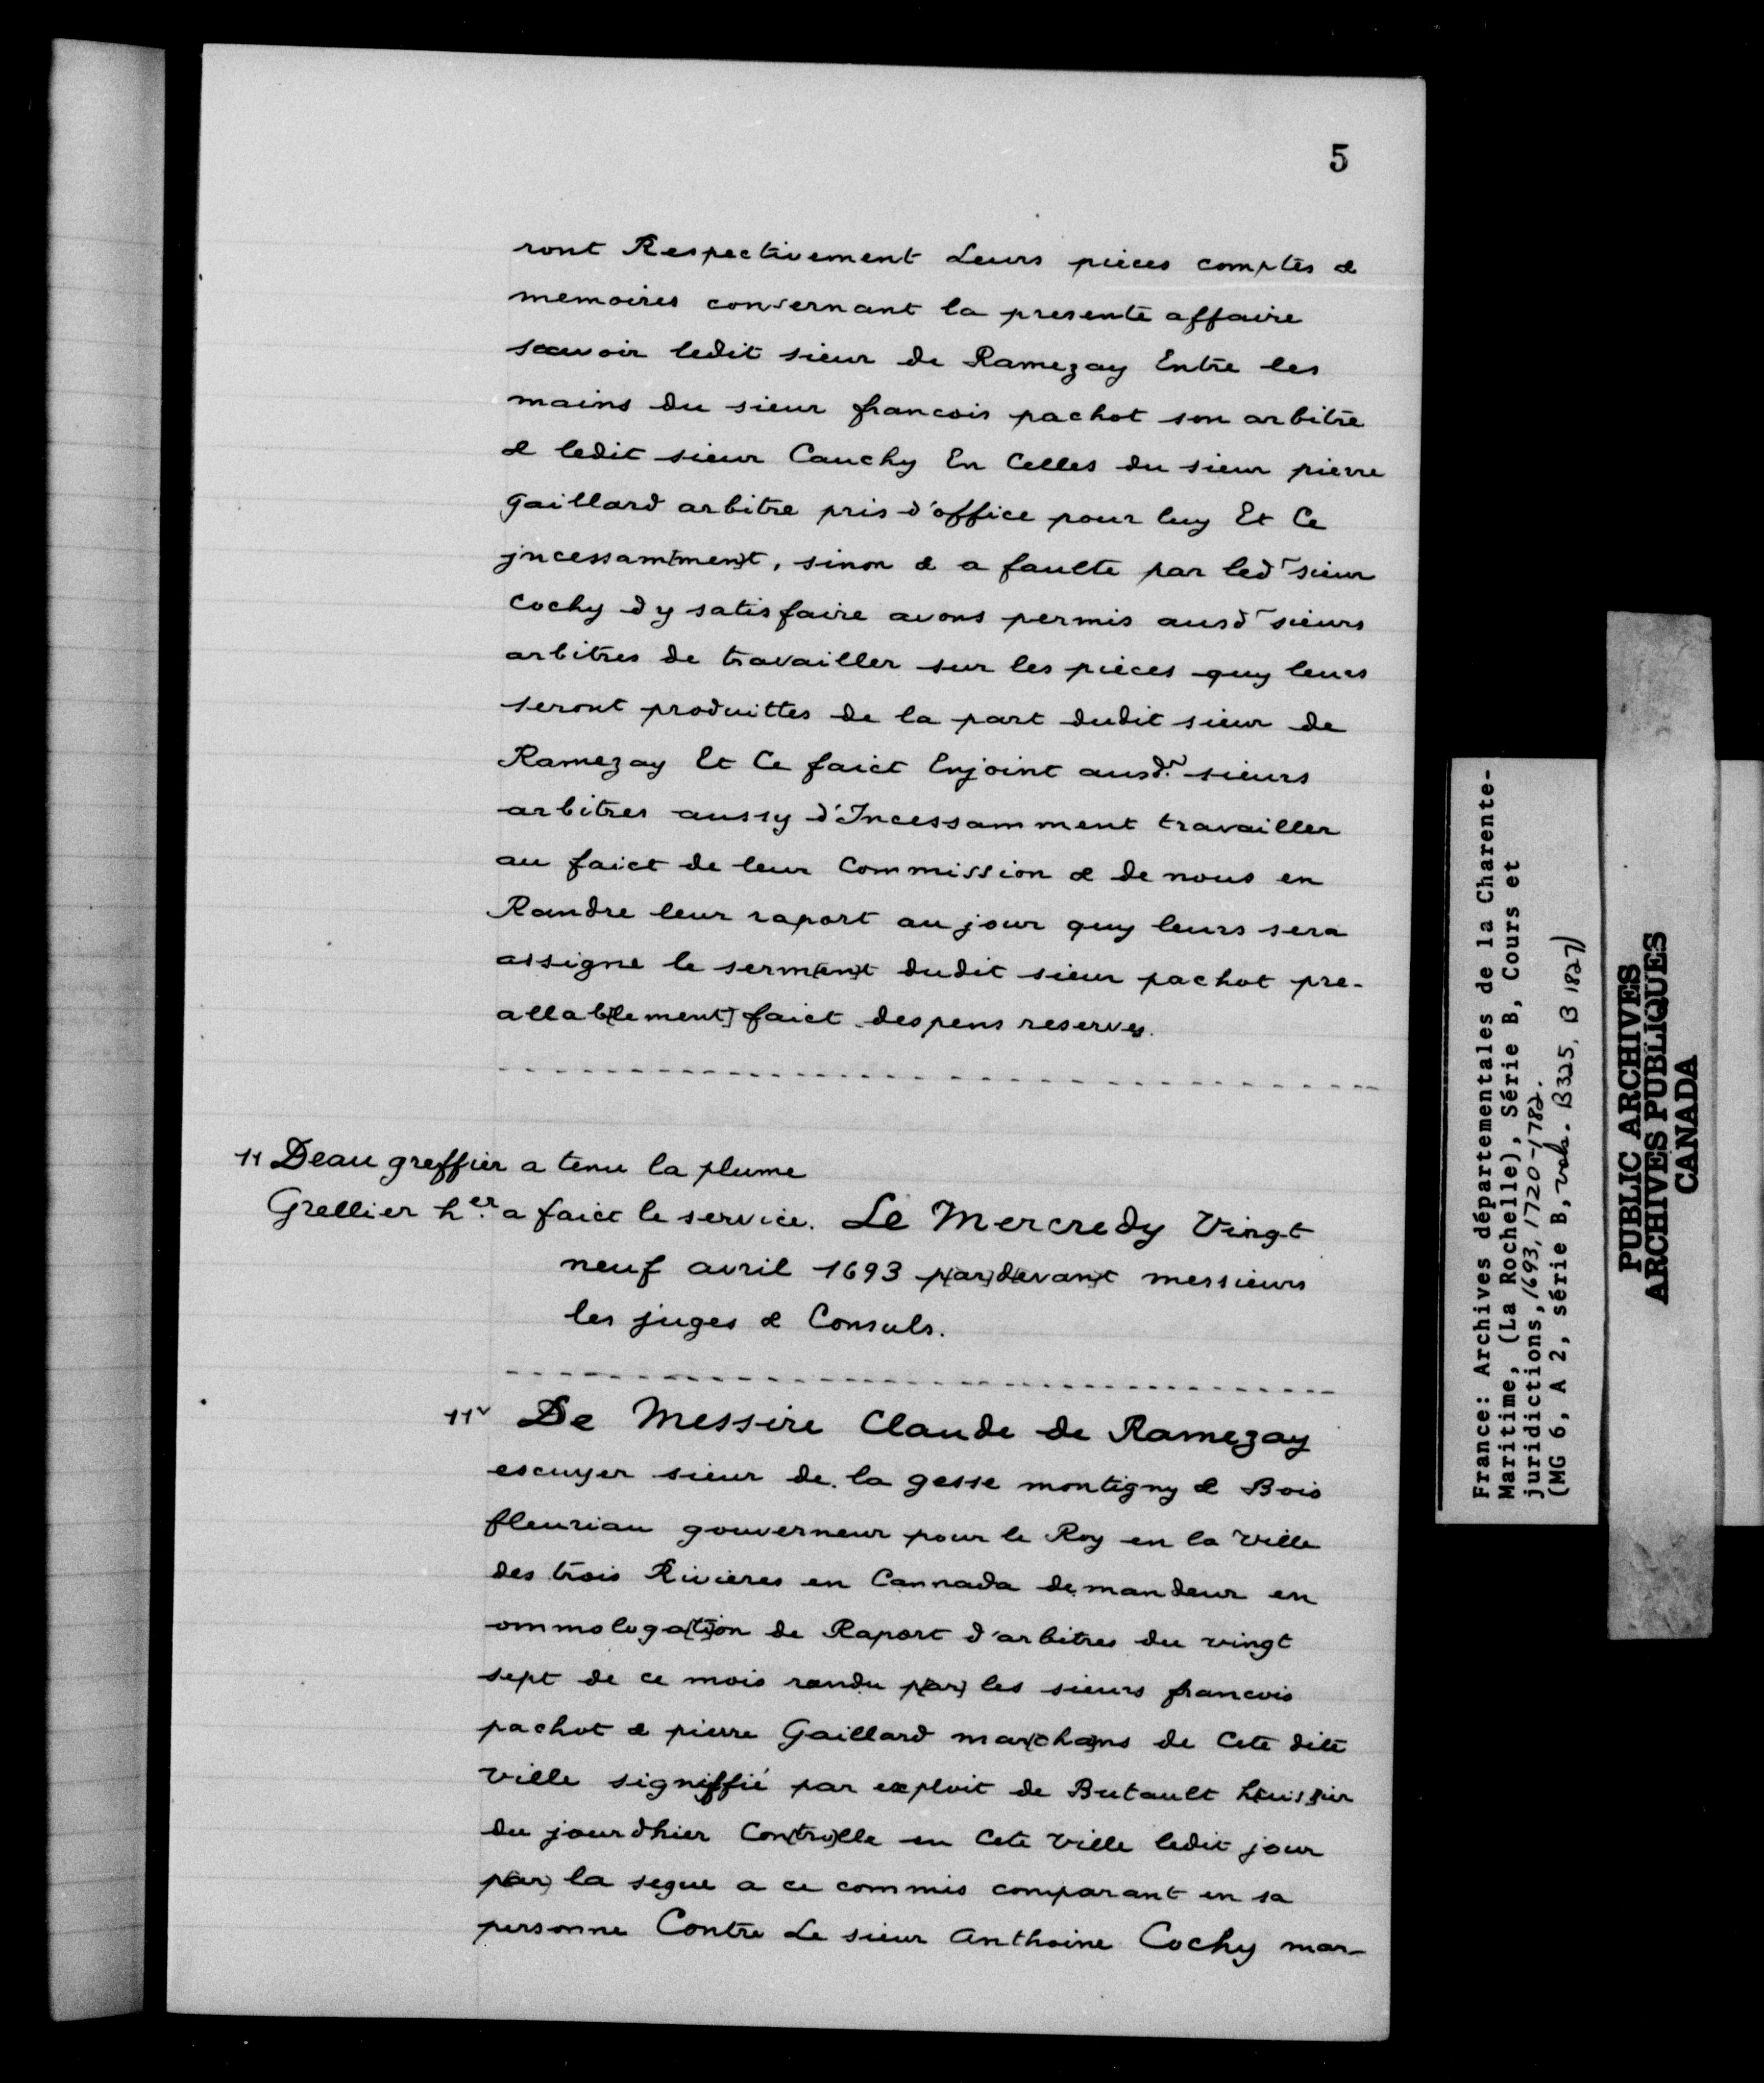 5
ront Respectivement Leurs pieces comptes &
memoires consernant la presente affaire
scavoir ledit sieur de Ramezay Entre les
mains du sieur francois pachot son arbitre
& ledit sieur Cauchy En Celles du sieur pierre
gaillard arbitre pris d'office pour luy Et Ce
jncessam[men]t, sinon & a faulte par led~ sieur
Cochy d y satisfaire avons permis ausd~ sieurs
arbitres de travailler sur les pieces quy leurs
seront produittes de la part dudit sieur de
Ramezay Et Ce faict Enjoint ausd.~ sieurs
arbitres aussy d'Incessamment travailler
au faict de leur Commission & de nous en
Randre leur raport au jour quy leurs sera
assigne le serm[en]t dudit sieur pachot pre-
allab[lement] faict despens reserves.
11 Deau greffier a tenu la plume
Grellier h.er a faict le service. Le Mercredy Vingt
neuf avril 1693 p[ar]d[evan]t messieurs
les juges & Consuls.
11v De Messire Claude de Ramezay
escuyer sieur de la gesse montigny & Bois
fleuriau gouverneur pour le Roy en la ville
des trois Rivieres en Cannada demandeur en
ommologa[ti]on de Raport d'arbitres du vingt
sept de ce mois randu p[ar] les sieurs francois
pachot & pierre Gaillard mar[cha]ns de Cete dite
ville signiffié par exploit de Butault h[uissier
du jourdhier Con[tro]lle en Cete ville ledit jour
p[ar] la segue a ce commis comparant en sa
personne Contre Le sieur Anthoine Cochy mar-
France: Archives départementales de la Charente-
Maritime, (La Rochelle), Série B, Cours et
juridictions, 1693, 1720-1782.
(MG 6, A 2, série B, vols. B325, B 1827)
PUBLIC ARCHIVES
ARCHIVES PUBLIQUES
CANADA